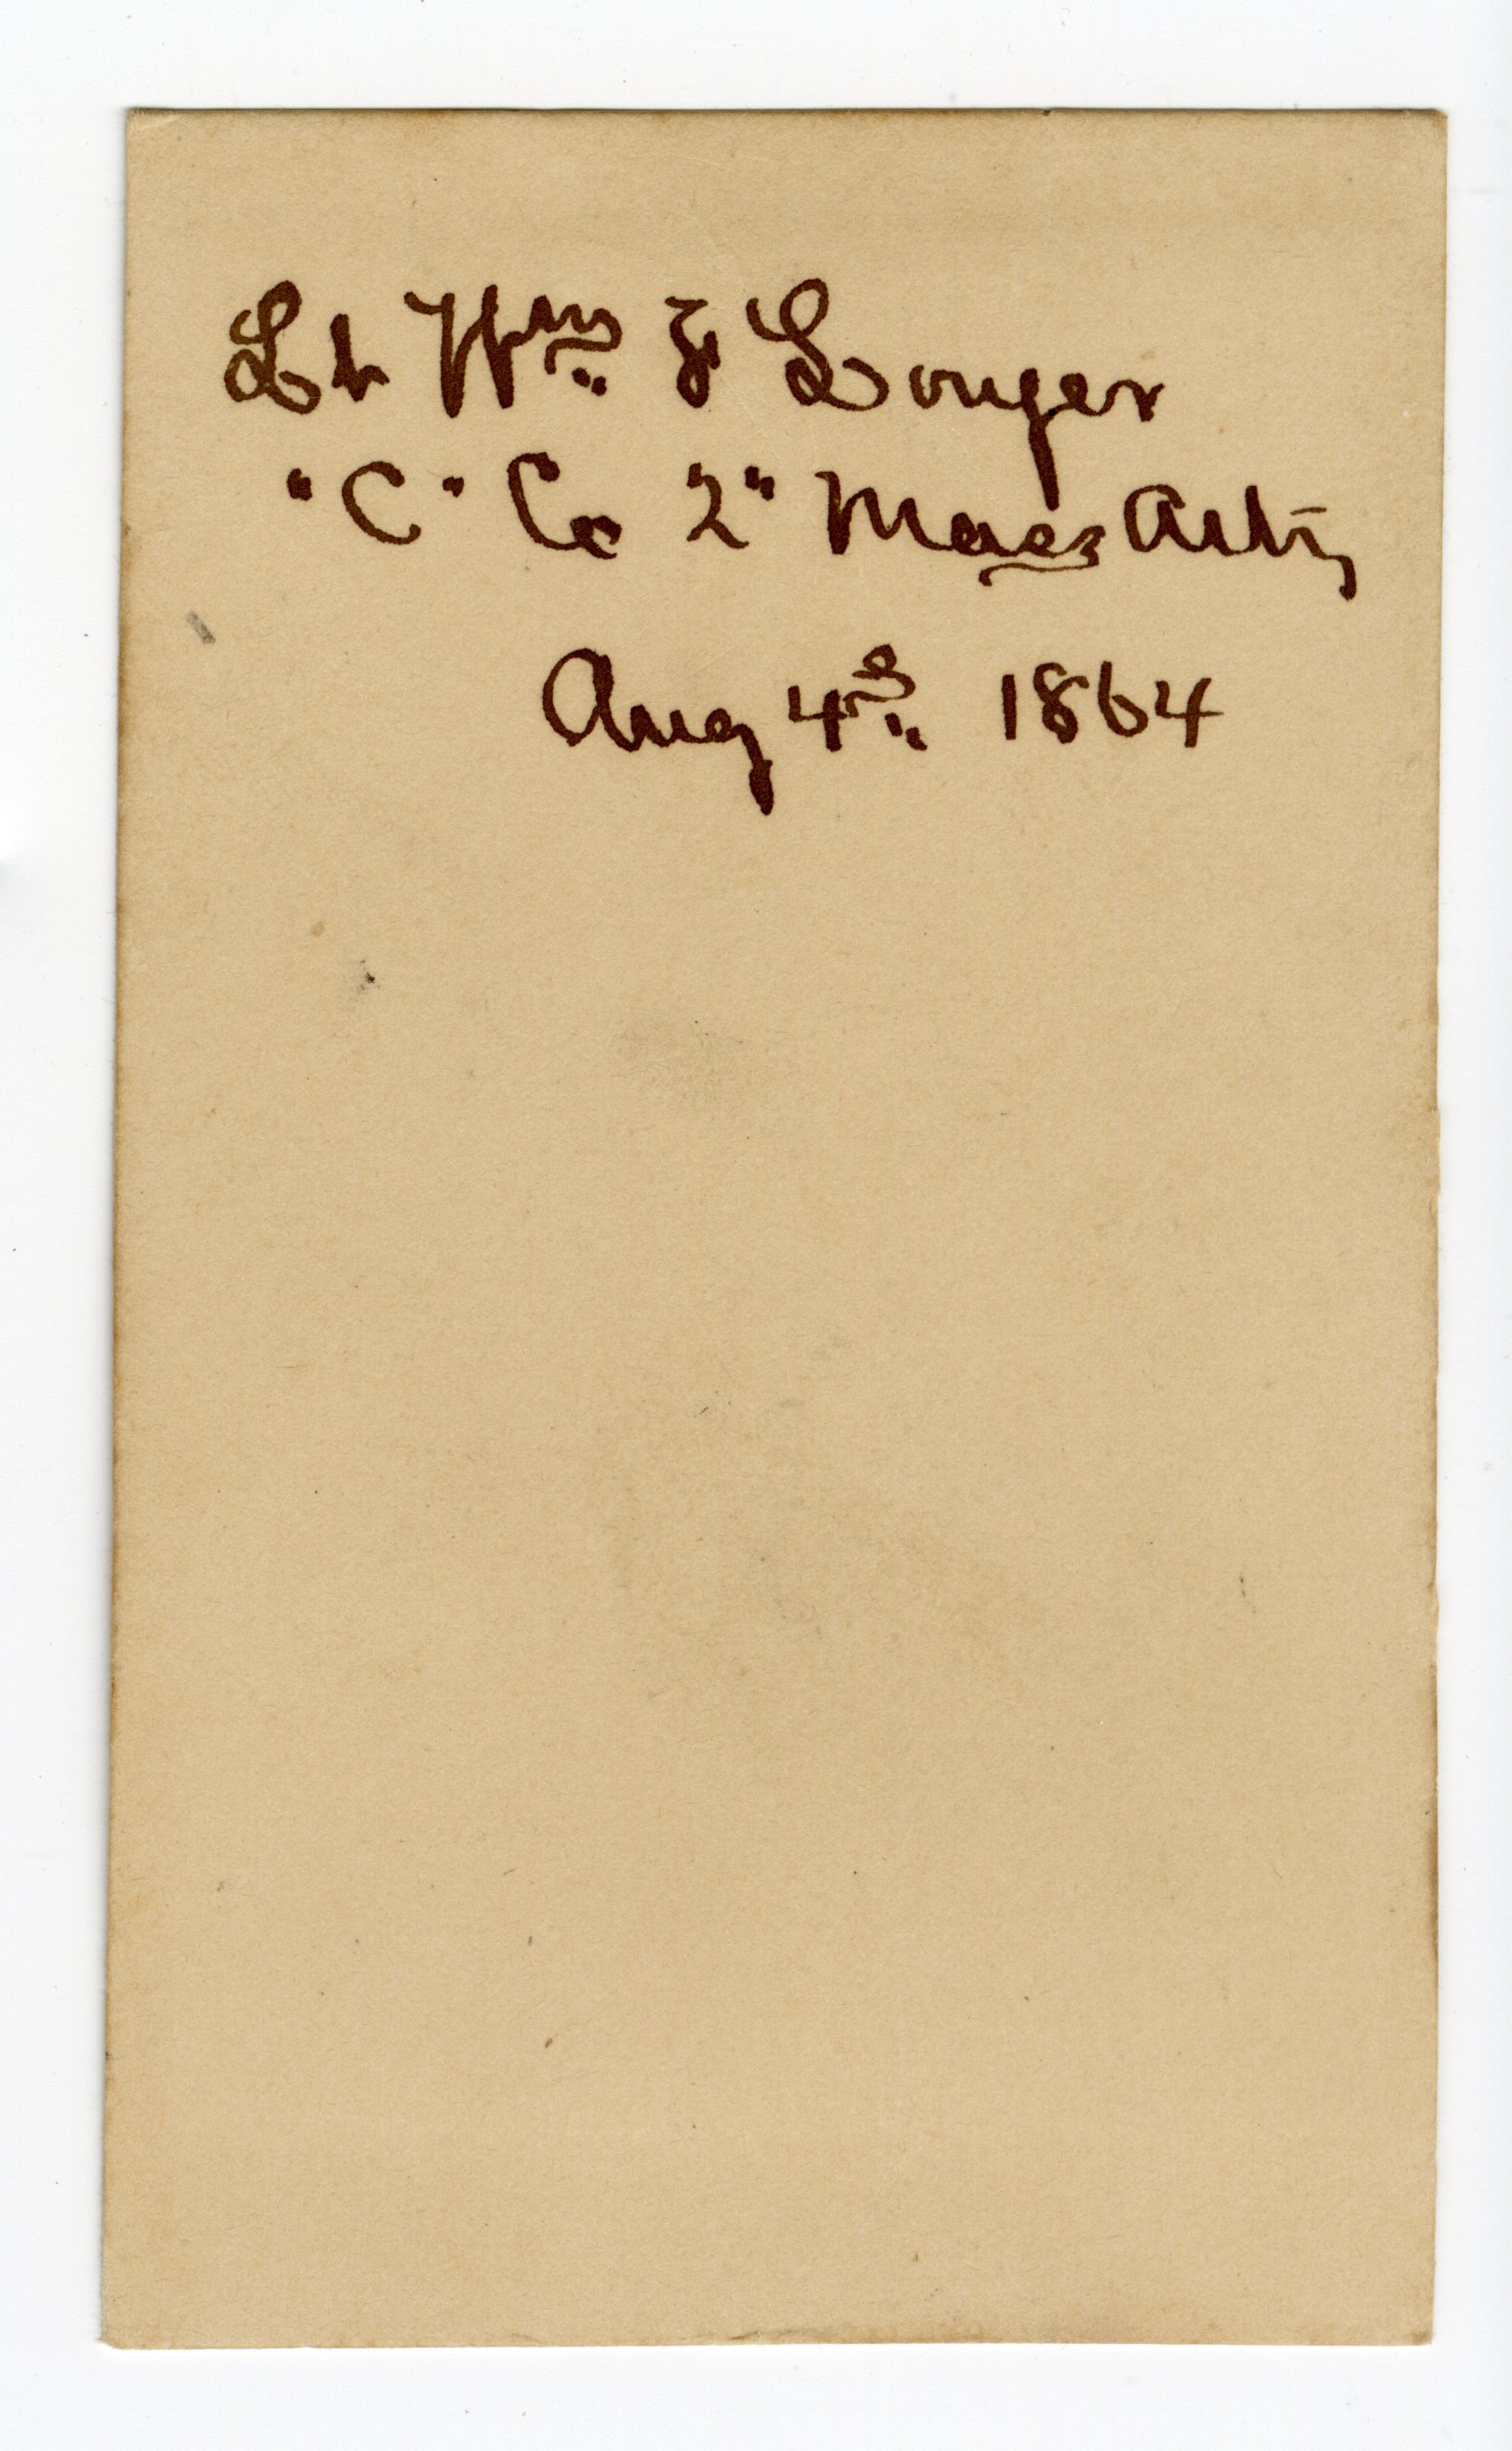 Lt Wm F Conger
"C" Co 2" Mass Arty
Aug 4th 1864